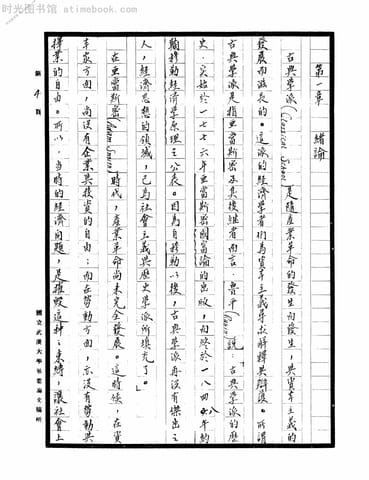 时光图书馆 - atimebook.com
第一章 緒論
古典學派(Classical School)是隨產業革命的發生而發生，與資本主義的
發展而滋長的。這派的經濟學者術為資本主義尋求解釋與辯護。所謂
古典學派是指亞當斯密及其後繼者而言。魯平(Rubin)說：「古典學派的歷
史，实始於一七七六年亞當斯密國富論的出版，而終於一八四八年約
翰穆勒經濟學原理之公表。因為自穆勒以後，古典學派再沒有傑出之
人，經濟思想的領域，已為社會主義與歷史學派所填充了。」
在亞當斯密(Adam Smith)時代，產業革命尚未完全發展。這時候，在資
本家方面，尚沒有企業與投資的自由；而在勞動方面，亦沒有勞動與
擇業的自由。所以，當時的經濟問題，是摧毀這种之束縛，讓社會上
第 頁
國立武漢大學畢業論文稿紙